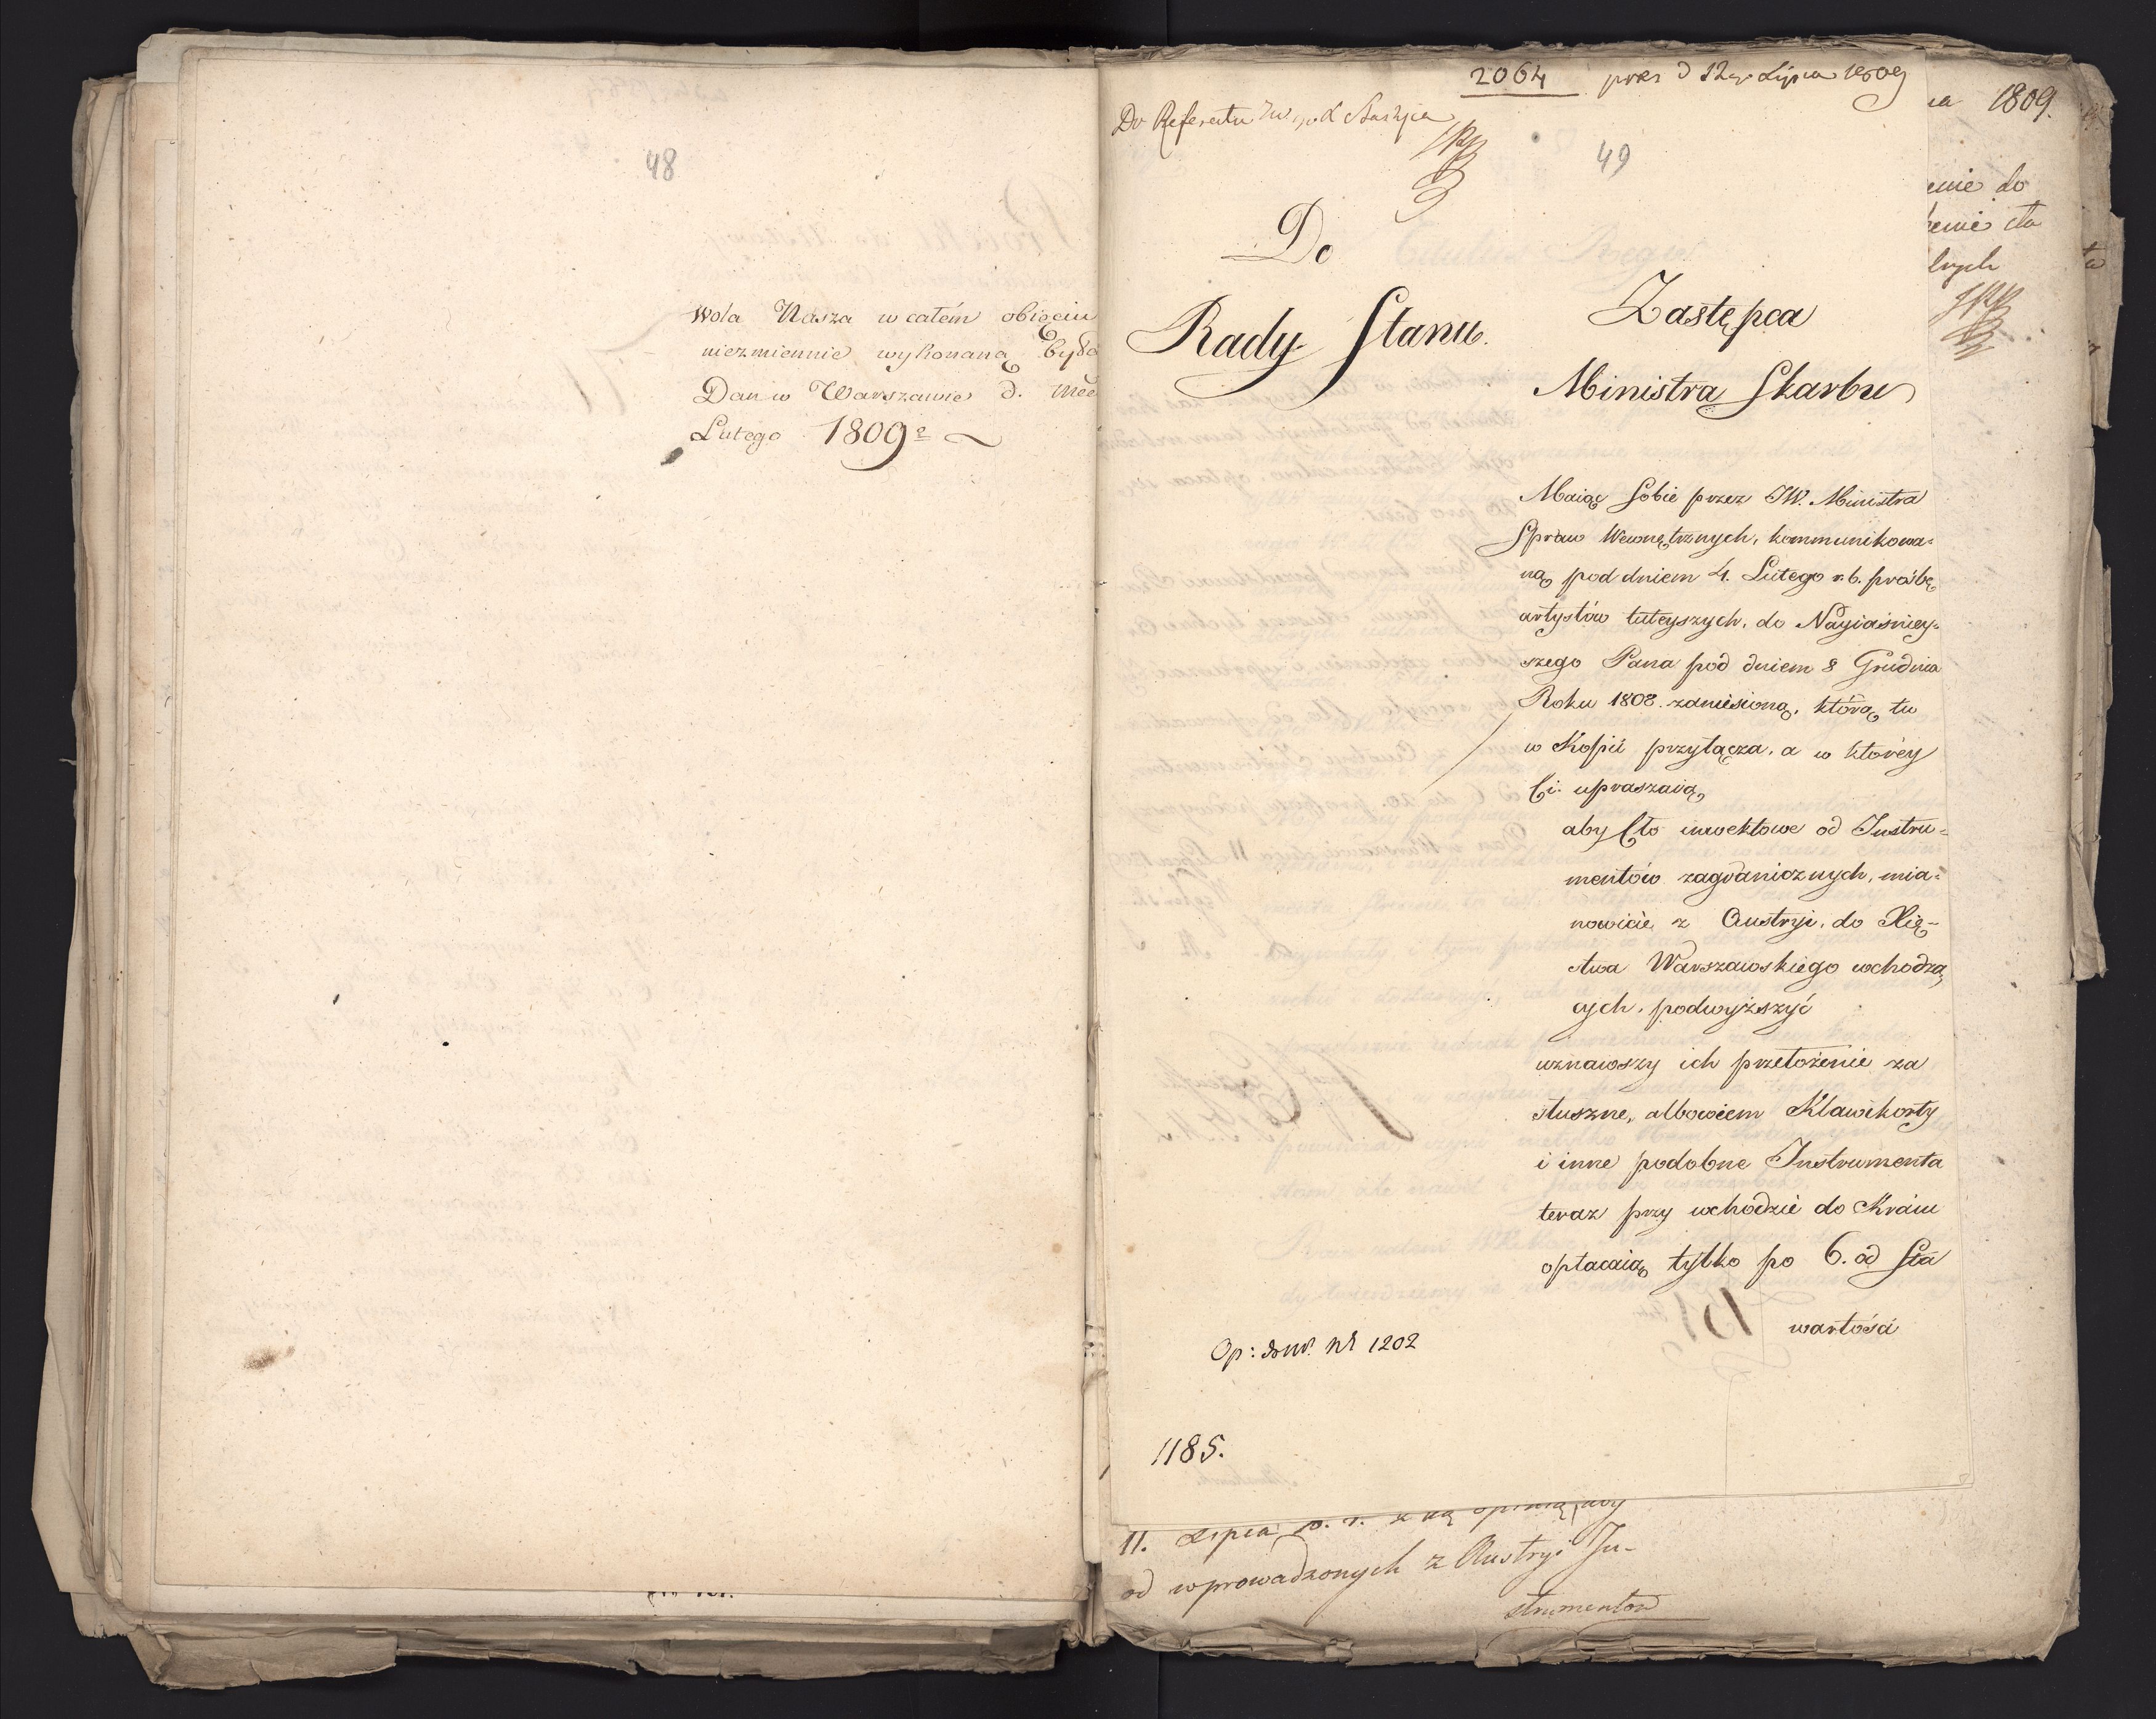 48
Wola Nasza w całém obięciu
niezmiennie wykonaną była
Dan w Warszawie d.
Lutego 1809
2064 prez d 12go Lipca 1809
Do Referatu
49
Do
Rady Stanu.
Zastępca
Ministra Skarbu
Maiąc Sobie przez JW. Ministra
Spraw Wewnętrznych, kommunikowa=
ną pod dniem 4. Lutego r. b. proźbę
artystów tuteyszych, do Nayiaśniey=
szego Pana pod dniem 8 Grudnia
Roku 1808. zaniesioną, którą tu
w Kopii przyłącza, a w którey
Ci upraszaią,
aby Cło inwektowe od Instru=
mentów zagranicznych, mia=
nowicie z Austryi, do Xię-
stwa Warszawskiego wchodzą
cych, podwyższyć
uznawszy ich przełożenie za
słuszne, albowiem Klawikorty
i inne podobne Instrumenta
teraz przy wchodzie do Kraiu
opłacaią tylko po 6. od Sta
wartości
Nr 1202
1185.
1809.
enie do
11. Lipca
od wprowadzonych z Austryi In-
strumentów